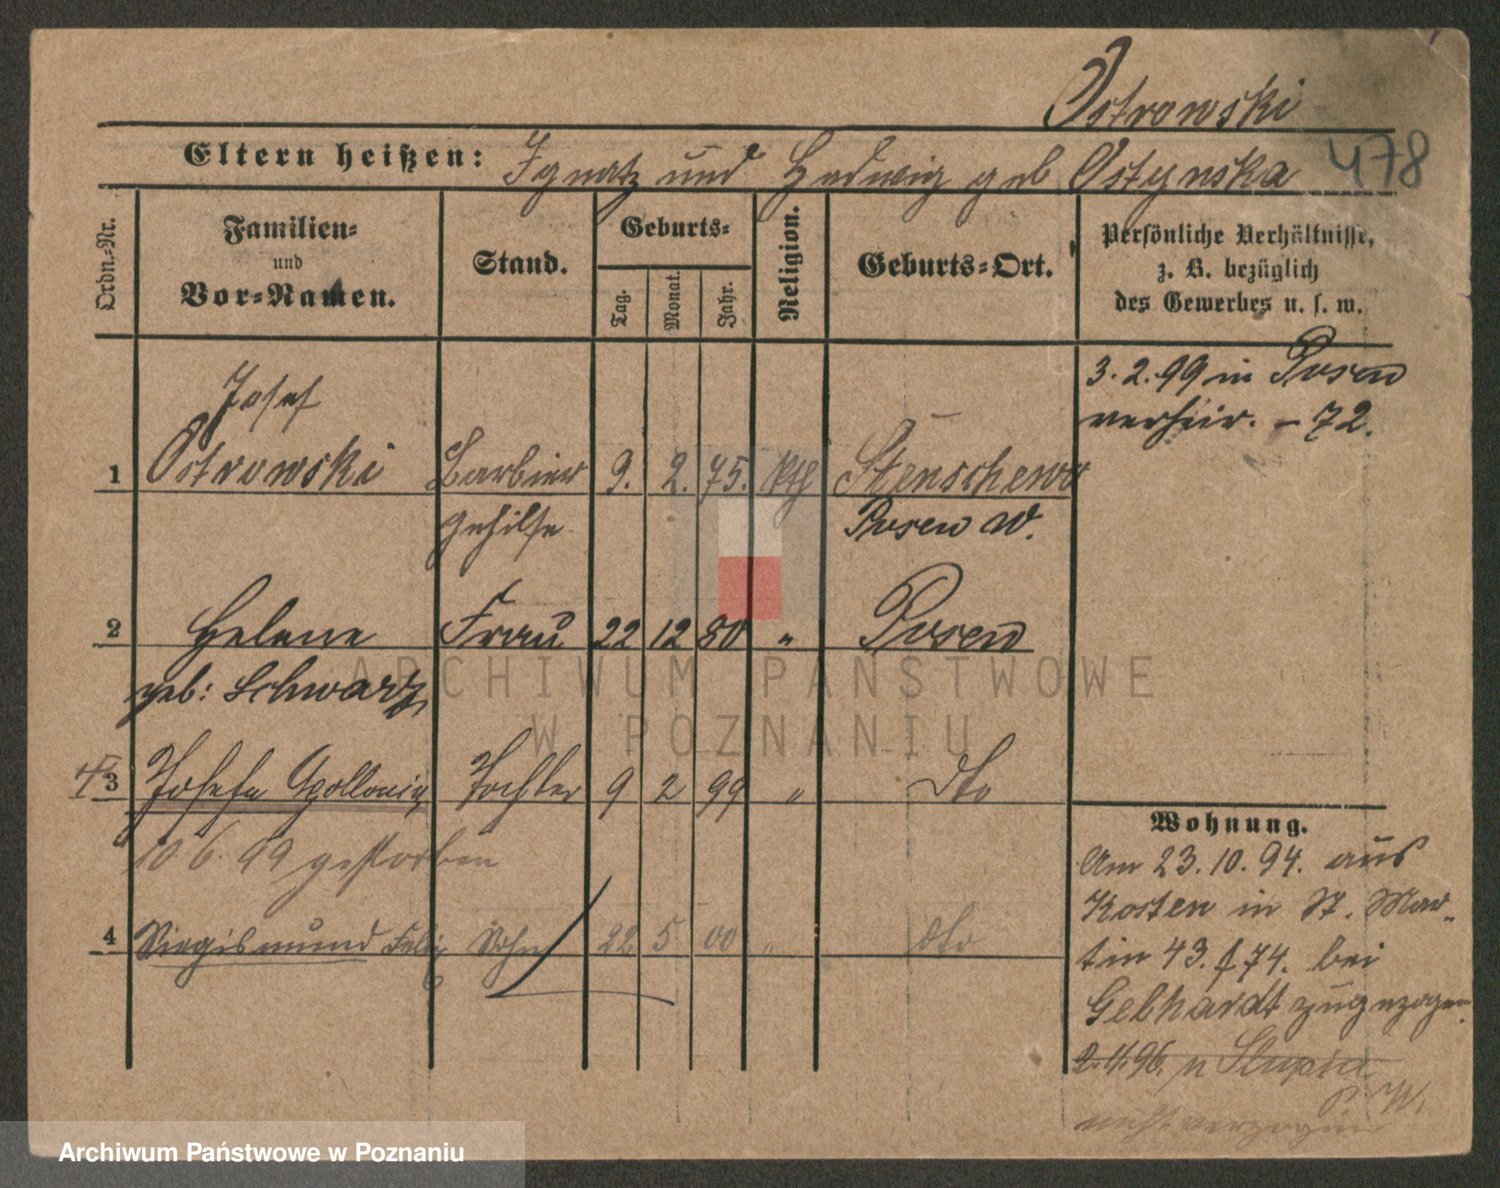 Ostrowski
Eltern heißen: Ignatz und Hedwig geb Ostynska 478
Ordn.-Nr.
Familien-
und
Vor-Namen.
Stand.
Geburts-
Tag. Monat. Jahr.
Religion.
Geburts-Ort.
Persönliche Verhältnisse,
z. B. bezüglich
des Gewerbes u. s. w.
3. 2. 99 in Posen
verheir. - 72.
Josef
1 Ostrowski Barbier 9. 2. 75. kth Stenschewo
Gehilfe Posen W.
2 Helene Frau 22 12 80 " Posen
geb: Schwarz
3 Josefa Apollonia Tochter 9 2 99 " dto
10 6. 99 gestorben
4 Siegismund Felix Sohn 22 5 00 " dto
Wohnung.
Am 23. 10. 94. aus
Kosten in St. Mar-
tin 43. f 74. bei
Gebhardt zugezogen.
2. 4. 96. n Slupia
P. W.
nicht verzogen
ARCHIWUM PAŃSTWOWE
W POZNANIU
Archiwum Państwowe w Poznaniu